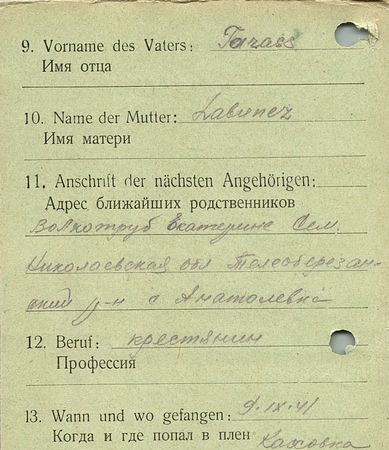 9. Vorname des Vaters: Tarass
Имя отца
10. Name der Mutter: Labunez
Имя матери
11. Anschrift der nächsten Angehörigen:
Адрес ближайших родственников
Волкотруб Екатерине Сем.
Николаевская обл Тилеоберезан-
ский р-н с Анатолевка
12. Beruf: крестянин
Профессия
13. Wann und wo gefangen: 9.IX.41
Когда и где попал в плен Каховка